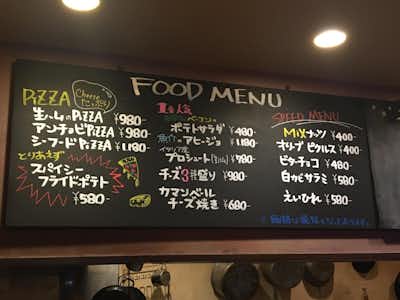 FOOD MENU
PiZZA
Cheese
たっぷり
生ハムのPiZZA ¥980-
アンチョビPiZZA ¥980-
シーフードPiZZA ¥1,180-
とりあえず
スパイシー
フライドポテト
¥580-
人気
ベーコンの
ポテトサラダ ¥480-
アヒージョ ¥1,180-
イタリア産
プロシュート ¥980-
チーズ3種盛り ¥980-
カマンベール
チーズ焼き ¥680-
SPEED MENU
MIXナッツ ¥400-
オリーブピクルス ¥400-
ビターチョコ ¥480-
白カビサラミ ¥580-
えいひれ ¥580-